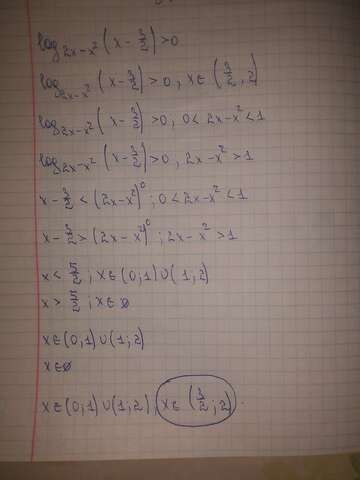 log_{2x-x²}(x - 3/2) > 0
log_{2x-x²}(x - 3/2) > 0, x∈(3/2, 2)
log_{2x-x²}(x - 3/2) > 0, 0 < 2x-x² < 1
log_{2x-x²}(x - 3/2) > 0, 2x-x² > 1
x - 3/2 < (2x-x²)⁰; 0 < 2x-x² < 1
x - 3/2 > (2x-x²)⁰; 2x-x² > 1
x < 5/2; x∈(0;1)∪(1;2)
x > 5/2; x∈∅
x∈(0,1)∪(1;2)
x∈∅
x∈(0;1)∪(1;2), x∈(3/2;2).